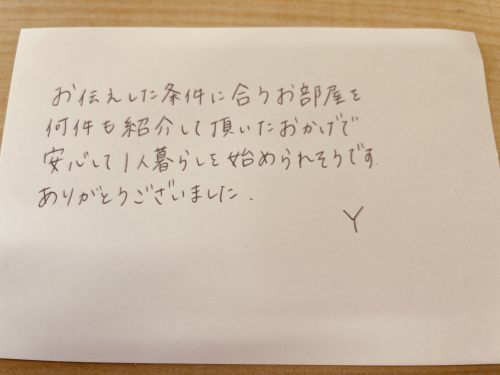 お伝えした条件に合うお部屋を
何件も紹介して頂いたおかげで
安心して1人暮らしを始められそうです.
ありがとうございました.
Y